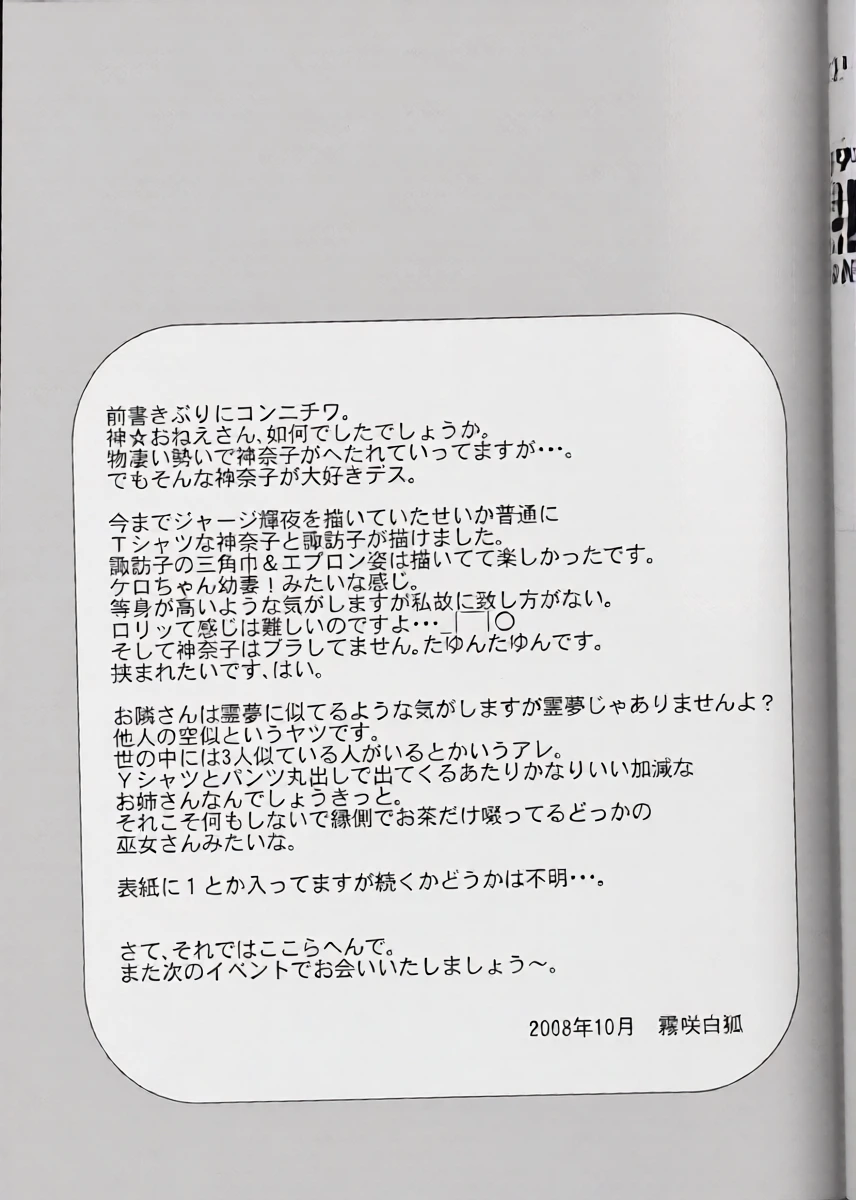 前書きぶりにコンニチワ。
神☆おねえさん、如何でしたでしょうか。
物凄い勢いで神奈子がへたれていってますが･･･。
でもそんな神奈子が大好きデス。
今までジャージ輝夜を描いていたせいか普通に
Ｔシャツな神奈子と諏訪子が描けました。
諏訪子の三角巾＆エプロン姿は描いてて楽しかったです。
ケロちゃん幼妻！みたいな感じ。
等身が高いような気がしますが私故に致し方がない。
ロリッて感じは難しいのですよ･･･_|￣|○
そして神奈子はブラしてません。たゆんたゆんです。
挟まれたいです、はい。
お隣さんは霊夢に似てるような気がしますが霊夢じゃありませんよ？
他人の空似というヤツです。
世の中には3人似ている人がいるとかいうアレ。
Ｙシャツとパンツ丸出しで出てくるあたりかなりいい加減な
お姉さんなんでしょうきっと。
それこそ何もしないで縁側でお茶だけ啜ってるどっかの
巫女さんみたいな。
表紙に１とか入ってますが続くかどうかは不明･･･。
さて、それではここらへんで。
また次のイベントでお会いいたしましょう～。
2008年10月　霧咲白狐